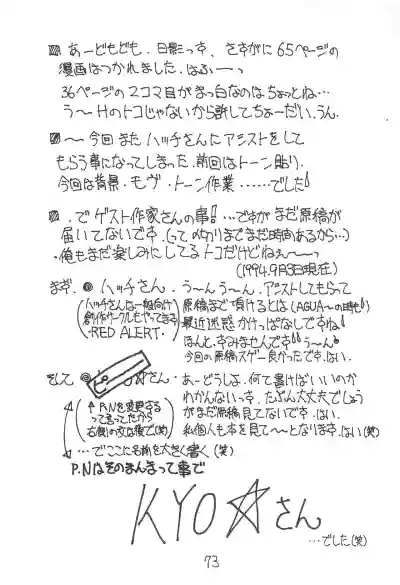 あーどもども、日影っす、さすがに65ページの
漫画はつかれました、はふーっ
36ページの2コマ目がまっ白なのはちょっとね…
う〜Hのトコじゃないから許してちょーだい、うん、
〜今回またハッチさんにアシストをして
もらう事になってしまった、前回はトーン貼り、
今回は背景・モヴ・トーン作業……でした!
でゲスト作家さんの事!!…ですがまだ原稿が
届いてないです、(って〆切りまでまだ時間あるから…)
・俺もまだ楽しみにしてるトコだけどねぇ〜〜っ
(1994.9月3日現在)
まず、◎ハッチさん、う〜んう〜ん、アシストしてもらって
(ハッチさんは一般向け
創作サークルもやってきる
・RED ALERT・)
原稿まで頂けるとは(AGUA〜の時も)
最近迷惑かけっぱなしですね!
ほんと、すみませんです!!う〜ん
今回の原稿スゲー良かったです、はい、
そして◎さん・あーどうしよ、何て書けばいいのか
(↑P.Nを変更する
って言ってたから
右側の文は後で(笑))
わかんないっす、たぶん大丈夫でしょう
がまだ原稿見てないです、はい、
私個人も本を見て〜〜となります、はい(笑)
…でここに名前を大きく書く(笑)
P.Nはそのまんまって事で
KYO☆さん
…でした(笑)
73